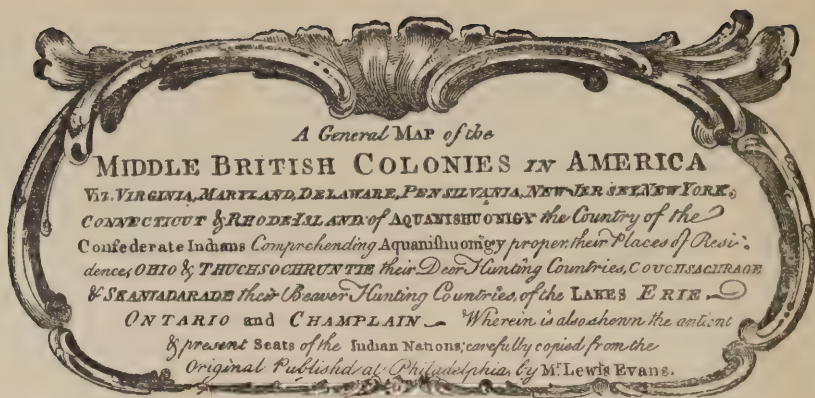 A General MAP of the
MIDDLE BRITISH COLONIES IN AMERICA
Viz. VIRGINIA, MARYLAND, DELAWARE, PENSILVANIA, NEW-JERSEY, NEW YORK,
CONNECTICUT & RHODE-ISLAND of AQUANISHUONIGY the Country of the
Confederate Indians Comprehending Aquaniſhuonigy proper, their Places of Resi:
dence, OHIO & THUCHSOCHRUNTIE their Deer Hunting Countries, COUCHSACHRAGE
& SKANIADARADE their Beaver Hunting Countries, of the LAKES ERIE
ONTARIO and CHAMPLAIN Wherein is also shewn the antient
& present Seats of the Indian Nations; carefully copied from the
Original Publish'd at Philadelphia, by Mr. Lewis Evans.